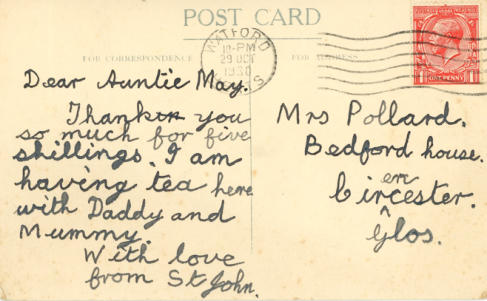 POST CARD
FOR CORRESPONDENCE
FOR ADDRESS
WATFORD
12-PM
29 OCT
1930
ONE PENNY
Dear Auntie May.
Thank you
so much for five
shillings. I am
having tea here
with Daddy and
Mummy.
With love
from St John.
Mrs Pollard.
Bedford house.
Cirencester.
Glos.